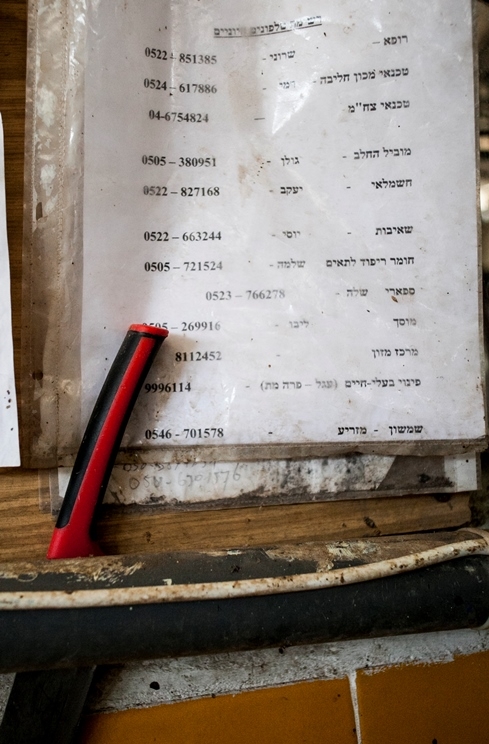 רשימת טלפונים חיוניים
רופא – שרוני - 0522 – 851385
טכנאי מכון חליבה - - 0524 – 617886
טכנאי צח"מ – 04-6754824
מוביל החלב - גולן - 0505 – 380951
חשמלאי - יעקב - 0522 – 827168
שאיבות - יוסי - 0522 – 663244
חומר ריפוד לתאים שלמה - 0505 – 721524
ספארי שלה - 0523 – 766278
מוסך - ליבו - 0505 – 269916
מרכז מזון - 8112452
פינוי בעלי-חיים (עגל – פרה מת) - 9996114
שמשון - מזריע - 0546 – 701578